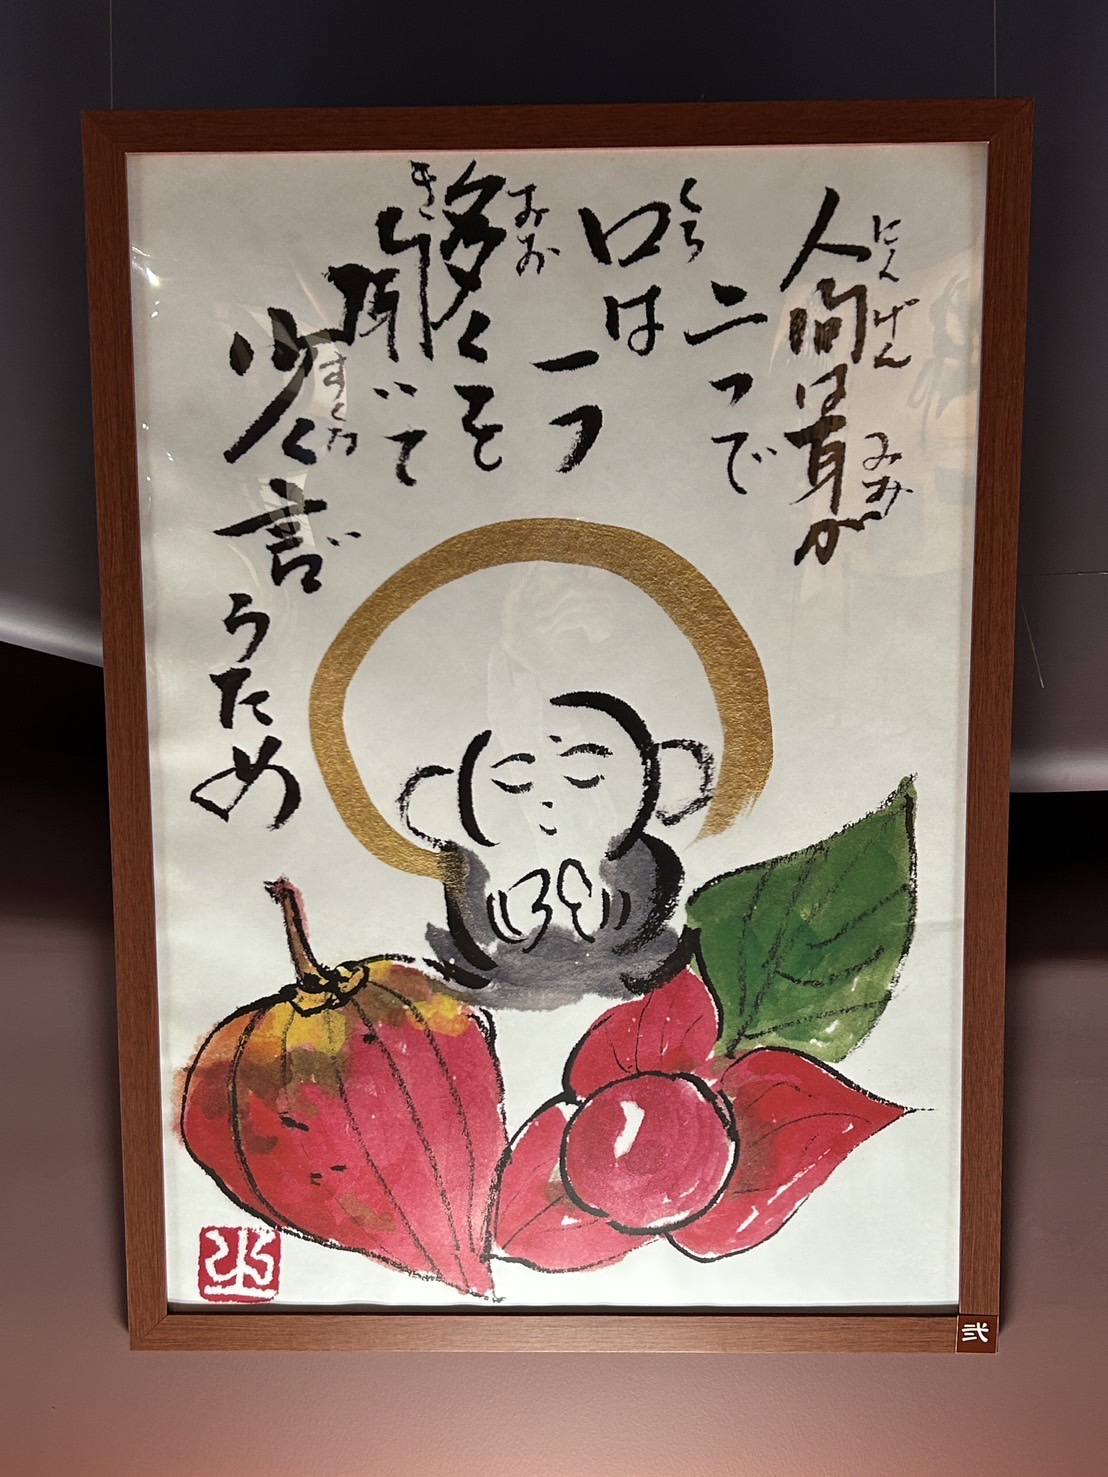 にんげん みみ
人間は耳が
二つで
くち
口は
一つ
おお
多くを
き
聞いて
すくな
少く言
うため
坐
弐